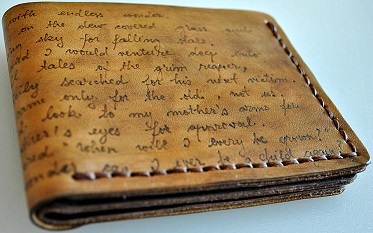 north endless wonder
on the dew covered grass and
sky for falling stars,
I would venture deep into
tales of the grim reaper,
searched for his next victim.
only for the old, not us.
look to my mother's arms for
eyes for approval.
"When will I every be grown?"
can I ever be a child again?